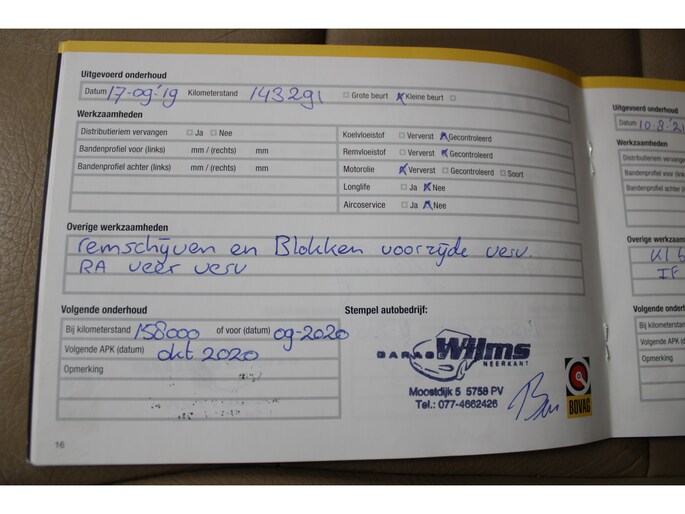 Uitgevoerd onderhoud
Datum 17-09-'19 Kilometerstand 143291 Grote beurt Kleine beurt
Werkzaamheden
Distributieriem vervangen Ja Nee
Bandenprofiel voor (links) mm / (rechts) mm
Bandenprofiel achter (links) mm / (rechts) mm
Koelvloeistof Ververst Gecontroleerd
Remvloeistof Ververst Gecontroleerd
Motorolie Ververst Gecontroleerd Soort
Longlife Ja Nee
Aircoservice Ja Nee
Overige werkzaamheden
remschijven en Blokken voorzijde verv.
RA veer verv
Volgende onderhoud
Bij kilometerstand 158000 of voor (datum) 09-2020
Volgende APK (datum) okt 2020
Opmerking
Stempel autobedrijf:
GARAGE Wilms
NEERKANT
Moostdijk 5 5758 PV
Tel.: 077-4662426
BOVAG
16
Uitgevoerd onderhoud
Datum 10-8-'21
Werkzaamheden
Distributieriem vervangen
Bandenprofiel voor (links)
Bandenprofiel achter (links)
Overige werkzaamheden
Volgende onderhoud
Bij kilometerstand
Volgende APK (datum)
Opmerking